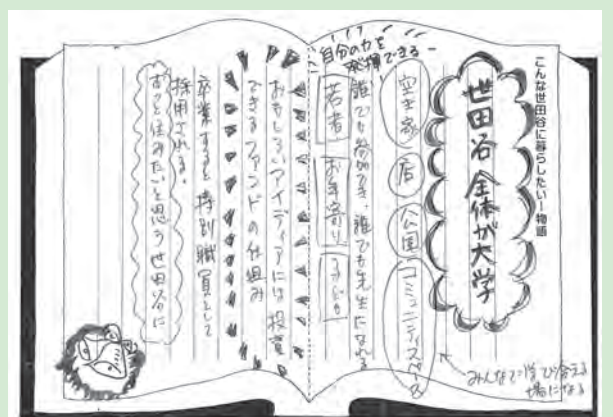 こんな世田谷に暮らしたい!物語
世田谷全体が大学
空き家 店 公園 コミュニティスペース
みんなで学び合える
場になる
誰でも参加でき、誰でも先生になれる
若者 お年寄り 子ども
自分の力を
発揮できる
おもしろいアイディアには投資
できるファンドの仕組み
卒業すると特別職員として
採用される。
ずっと住みたいと思う世田谷に